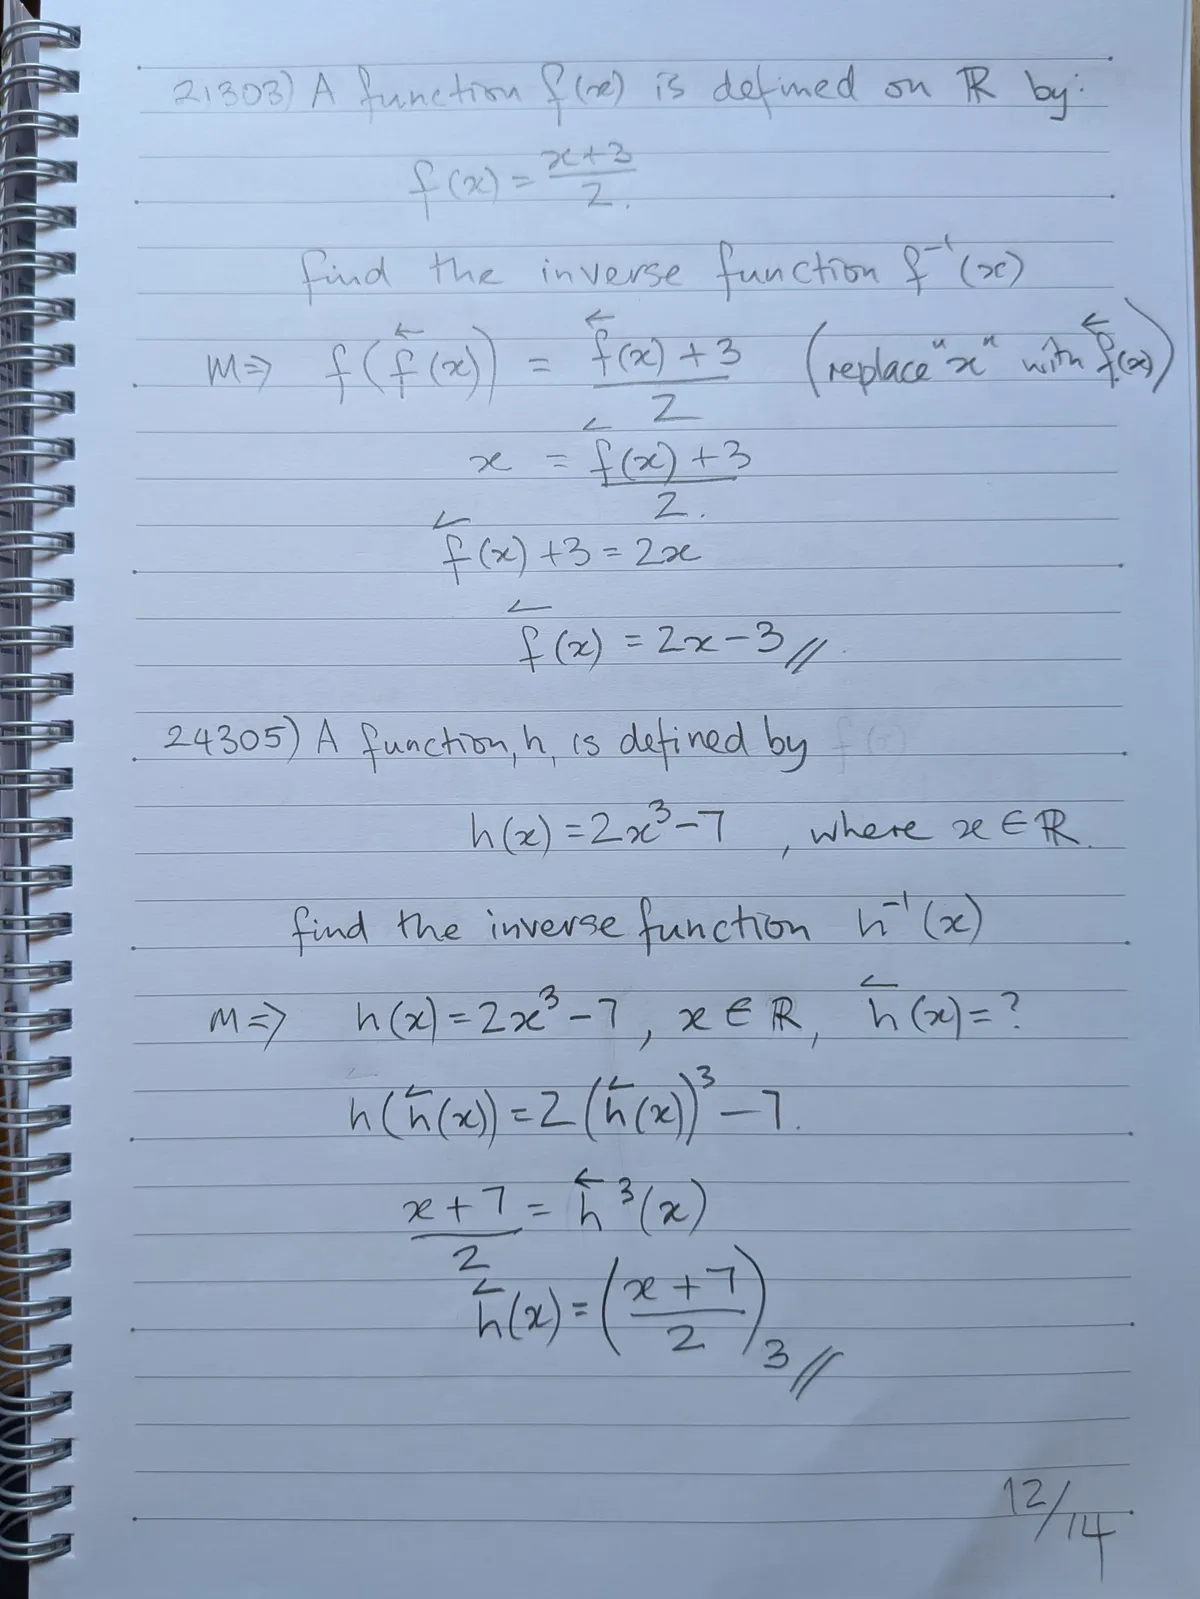 21303) A function f(x) is defined on ℝ by:
f(x) = (x+3)/2.
find the inverse function f⁻¹(x)
M⇒ f(f⃖(x)) = (f⃖(x)+3)/2 (replace "x" with f⃖(x))
x = (f⃖(x)+3)/2.
f⃖(x)+3 = 2x
f⃖(x) = 2x-3//.
24305) A function, h, is defined by f(x)
h(x) = 2x³-7, where x ∈ ℝ.
find the inverse function h⁻¹(x)
M⇒ h(x) = 2x³-7, x ∈ ℝ, h⃖(x) = ?
h(h⃖(x)) = 2(h⃖(x))³-7.
(x+7)/2 = h⃖³(x)
h⃖(x) = ((x+7)/2)₃//
12/14